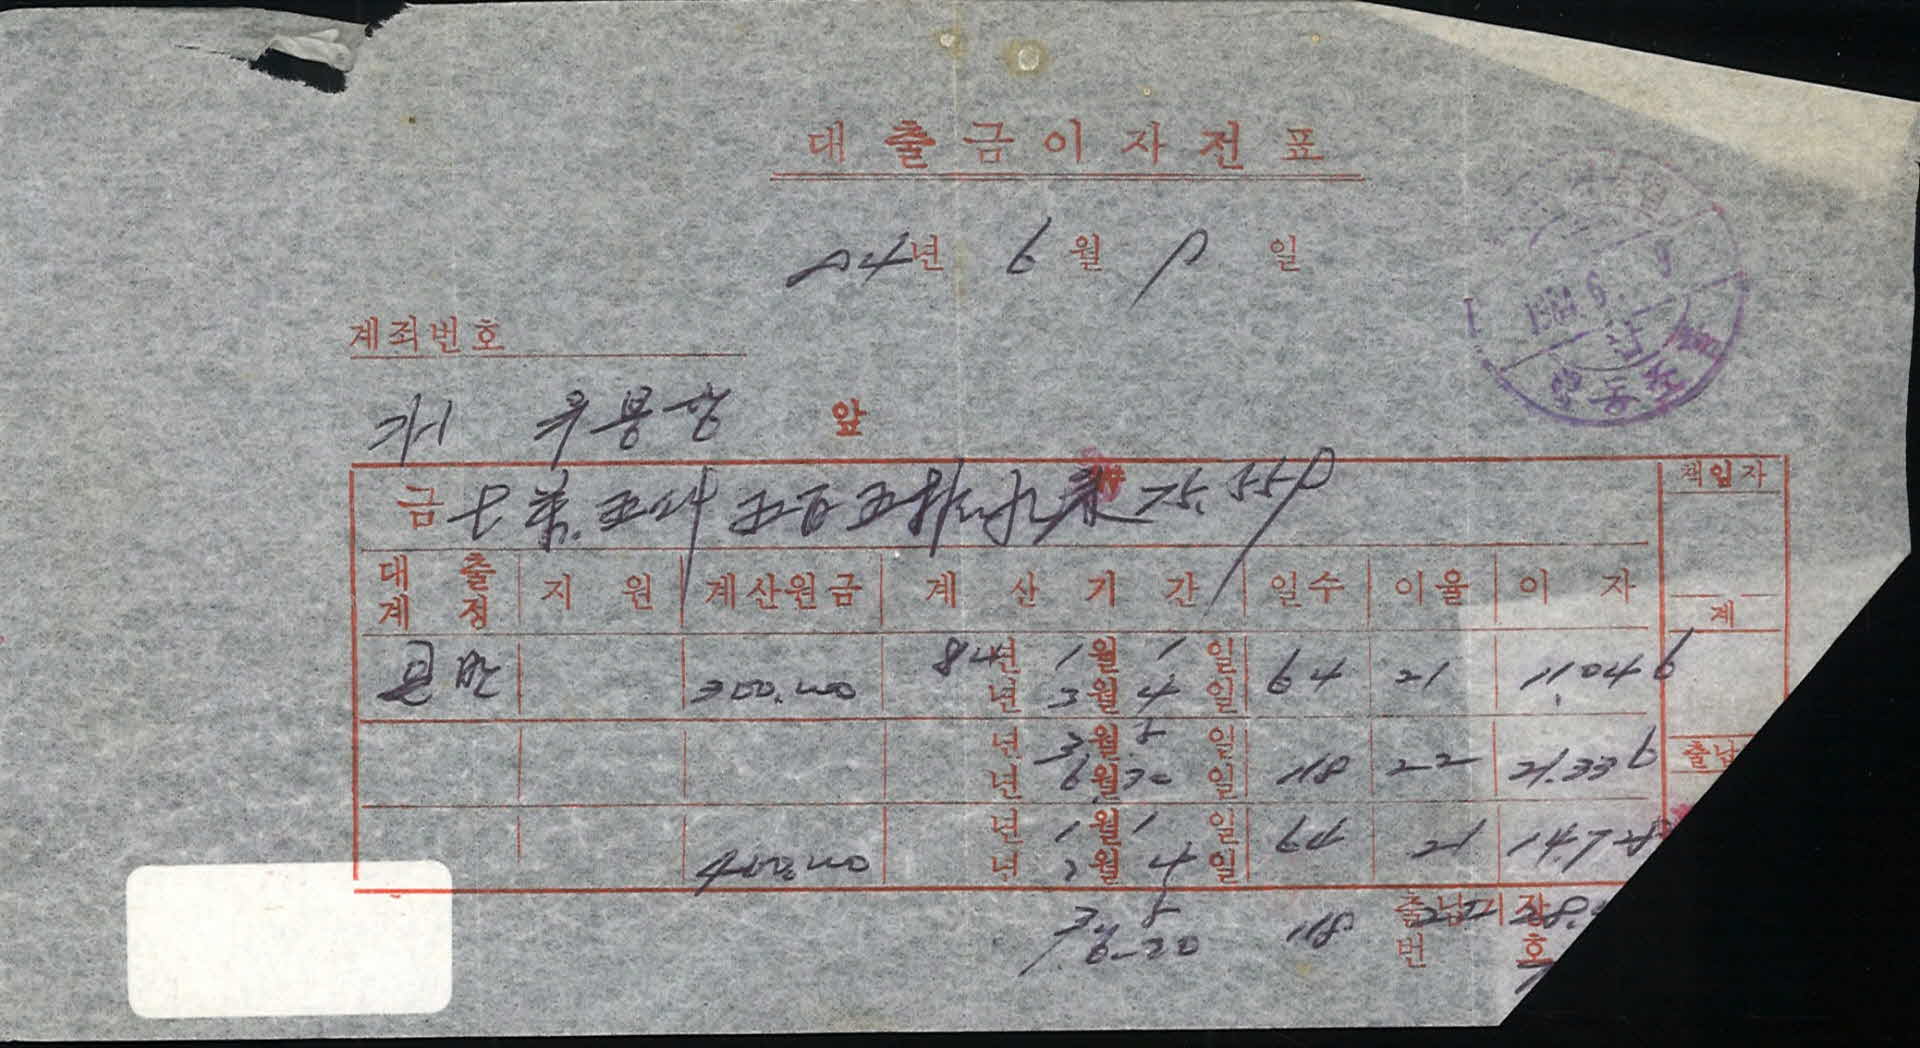 대출금이자전표
84년 6월 9일
계좌번호
우봉항 앞
금 七萬五千五百五拾 75,559
책임자
대출계정 지원 계산원금 계산기간 일수 이율 이자
계
일반 300,000 84년 1월 1일 64 21 11,046
년 3월 4일
년 3월 5일 118 22 21,336
년 6월 30일
출납
년 1월 1일 64 21 14,728
400,000 년 3월 4일
3 5 118 22 28,
6-30
출납기장번호
1984. 6. 9